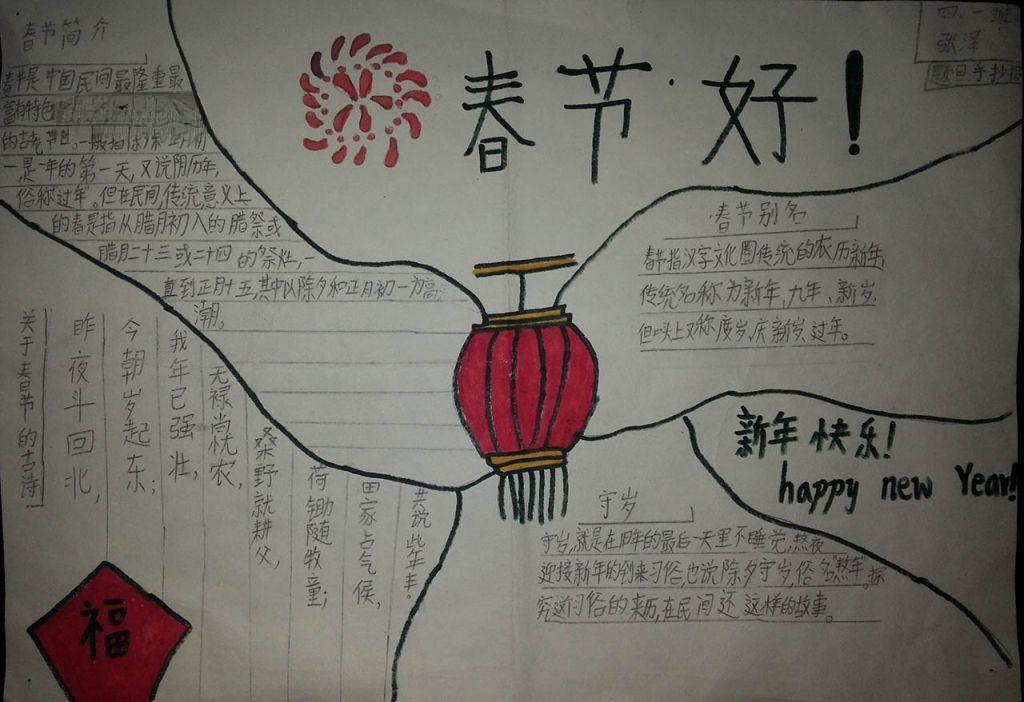 春节简介
春节是中国民间最隆重最
富有特色
的古老节日。一般指除夕和正月初
一,是一年的第一天,又说阴历年,
俗称过年。但在民间,传统意义上
的春是指从腊月初八的腊祭或
腊月二十三或二十四的祭灶,一
直到正月十五,其中以除夕和正月初一为高
潮。
春节·好!
四、一班
张泽
题目手抄报
春节别名
春节指汉字文化圈传统的农历新年,
传统名称为新年,九年、新岁,
但口头上又称度岁,庆新岁,过年。
新年快乐!
happy new Year!
守岁
守岁,就是在旧年的最后一天里不睡觉,熬夜
迎接新年的到来习俗,也说除夕守岁,俗名"熬年"。探
究这习俗的来历,在民间还 这样的故事。
关于春节的古诗
昨夜斗回北,
今朝岁起东;
我年已强壮,
无禄尚忧农,
桑野就耕父,
荷锄随牧童;
田家占气候,
共说此年丰。
福